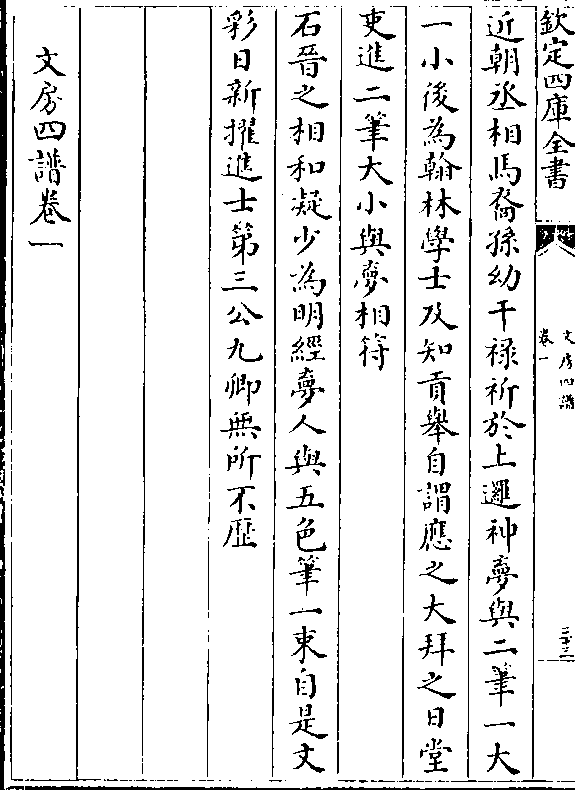 欽定四庫全書
文房四譜
卷一
三十三
近朝丞相馬裔孫幼干禄祈於上邏神夢與二筆一大
一小後為翰林學士及知貢舉自謂應之大拜之日堂
吏進二筆大小與夢相符
石晉之相和凝少為明經夢人與五色筆一束自是文
彩日新擢進士第三公九卿無所不歷
文房四譜卷一